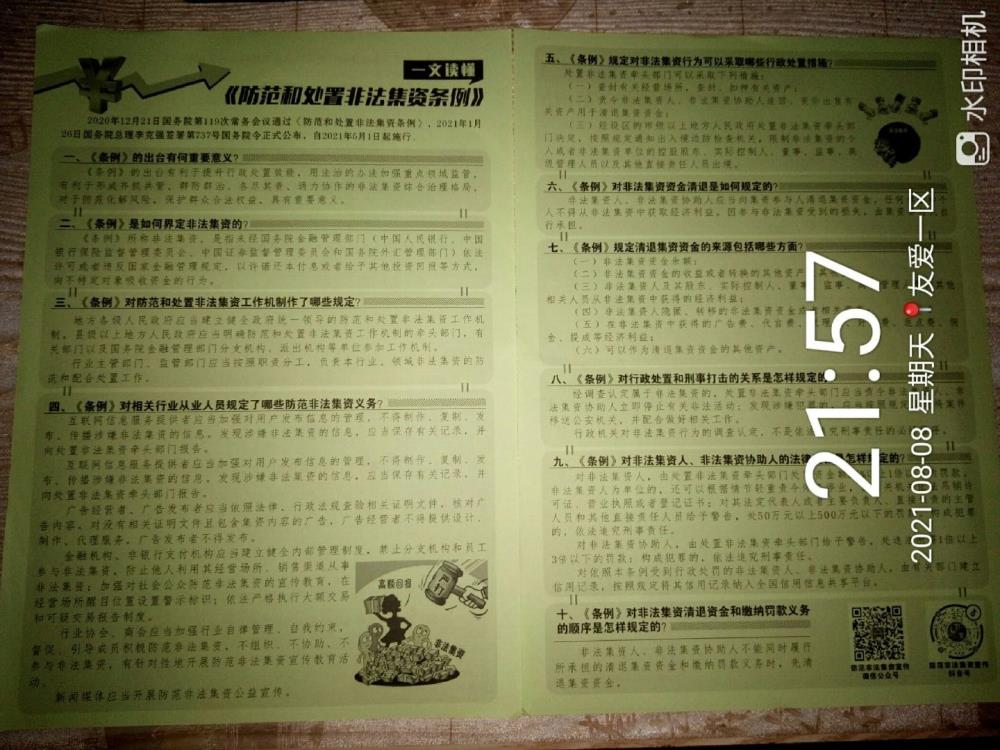 一文读懂
《防范和处置非法集资条例》
2020年12月21日国务院第119次常务会议通过《防范和处置非法集资条例》，2021年1月
26日国务院总理李克强签署第737号国务院令正式公布，自2021年5月1日起施行。
一、《条例》的出台有何重要意义？
《条例》的出台有利于提升行政处置效能，用法治的办法加强重点领域监管，
有利于形成齐抓共管、群防群治、各尽其责、通力协作的非法集资综合治理格局，
对于防范化解风险、保护群众合法权益，具有重要意义。
二、《条例》是如何界定非法集资的？
《条例》所称非法集资，是指未经国务院金融管理部门（中国人民银行、中国
银行保险监督管理委员会、中国证券监督管理委员会和国务院外汇管理部门）依法
许可或者违反国家金融管理规定，以许诺还本付息或者给予其他投资回报等方式，
向不特定对象吸收资金的行为。
三、《条例》对防范和处置非法集资工作机制作了哪些规定？
地方各级人民政府应当建立健全政府统一领导的防范和处置非法集资工作机
制。县级以上地方人民政府应当明确防范和处置非法集资工作机制的牵头部门，有
关部门以及国务院金融管理部门分支机构、派出机构等单位参加工作机制。
行业主管部门、监管部门应当按照职责分工，负责本行业、领域非法集资的防
范和配合处置工作。
四、《条例》对相关行业从业人员规定了哪些防范非法集资义务？
互联网信息服务提供者应当加强对用户发布信息的管理，不得制作、复制、发
布、传播涉嫌非法集资的信息。发现涉嫌非法集资的信息，应当保存有关记录，并
向处置非法集资牵头部门报告。
互联网信息服务提供者应当加强对用户发布信息的管理，不得制作、复制、发
布、传播涉嫌非法集资的信息。发现涉嫌非法集资的信息，应当保存有关记录，并
向处置非法集资牵头部门报告。
广告经营者、广告发布者应当依照法律、行政法规查验相关证明文件，核对广
告内容。对没有相关证明文件且包含集资内容的广告，广告经营者不得提供设计、
制作、代理服务，广告发布者不得发布。
金融机构、非银行支付机构应当建立健全内部管理制度，禁止分支机构和员工
参与非法集资，防止他人利用其经营场所、销售渠道从事
非法集资；加强对社会公众防范非法集资的宣传教育，在
经营场所醒目位置设置警示标识；依法严格执行大额交易
和可疑交易报告制度。
行业协会、商会应当加强行业自律管理、自我约束，
督促、引导成员积极防范非法集资，不组织、不协助、不
参与非法集资，有针对性地开展防范非法集资宣传教育活
动。
新闻媒体应当开展防范非法集资公益宣传。
高额回报
非法集资
五、《条例》规定对非法集资行为可以采取哪些行政处置措施？
处置非法集资牵头部门可以采取下列措施：
（一）查封有关经营场所，查封、扣押有关资产；
（二）责令非法集资人、非法集资协助人追回、变价出售有
关资产用于清退集资资金；
（三）经设区的市级以上地方人民政府处置非法集资牵头部
门决定，按照规定通知出入境边防检查机关，限制非法集资的个
人或者非法集资单位的控股股东、实际控制人、董事、监事、高
级管理人员以及其他直接责任人员出境。
六、《条例》对非法集资资金清退是如何规定的？
非法集资人、非法集资协助人应当向集资参与人清退集资资金，任何
人不得从非法集资中获取经济利益。因参与非法集资受到的损失，由集资
行承担。
七、《条例》规定清退集资资金的来源包括哪些方面？
（一）非法集资资金余额；
（二）非法集资资金的收益或者转换的其他资产
（三）非法集资人及其股东、实际控制人、董事
相关人员从非法集资中获得的经济利益；
（四）非法集资人隐匿、转移的非法集资资金或
（五）在非法集资中获得的广告费、代言费、
金、提成等经济利益；
（六）可以作为清退集资资金的其他资产。
八、《条例》对行政处置和刑事打击的关系是怎样规定的？
经调查认定属于非法集资的，处置非法集资牵头部门应当责令
法集资协助人立即停止有关非法活动；发现涉嫌犯罪的，
移送公安机关，并配合做好相关工作。
行政机关对非法集资行为的调查认定，不是依法追究刑事责任的必
九、《条例》对非法集资人、非法集资协助人的法律 是怎样规定的？
对非法集资人，由处置非法集资牵头部门处
非法集资人为单位的，还可以根据情节轻重责令
可证、营业执照或者登记证书；对其法定代表人或者主要负责人、直接负责的主管
人员和其他直接责任人员给予警告，处50万元以上500万元以下的罚款；构成犯罪
的，依法追究刑事责任。
对非法集资协助人，由处置非法集资牵头部门给予警告，处违法所得1倍以上
3倍以下的罚款；构成犯罪的，依法追究刑事责任。
对依照本条例受到行政处罚的非法集资人、非法集资协助人，由有关部门建立
信用记录，按照规定将其信用记录纳入全国信用信息共享平台。
十、《条例》对非法集资清退资金和缴纳罚款义务
的顺序是怎样规定的？
非法集资人、非法集资协助人不能同时履行
所承担的清退集资资金和缴纳罚款义务时，先清
退集资资金。
防范非法集资宣传
微信公众号
防范非法集资宣传
抖音号
21:57
2021-08-08 星期天 友爱一区
水印相机